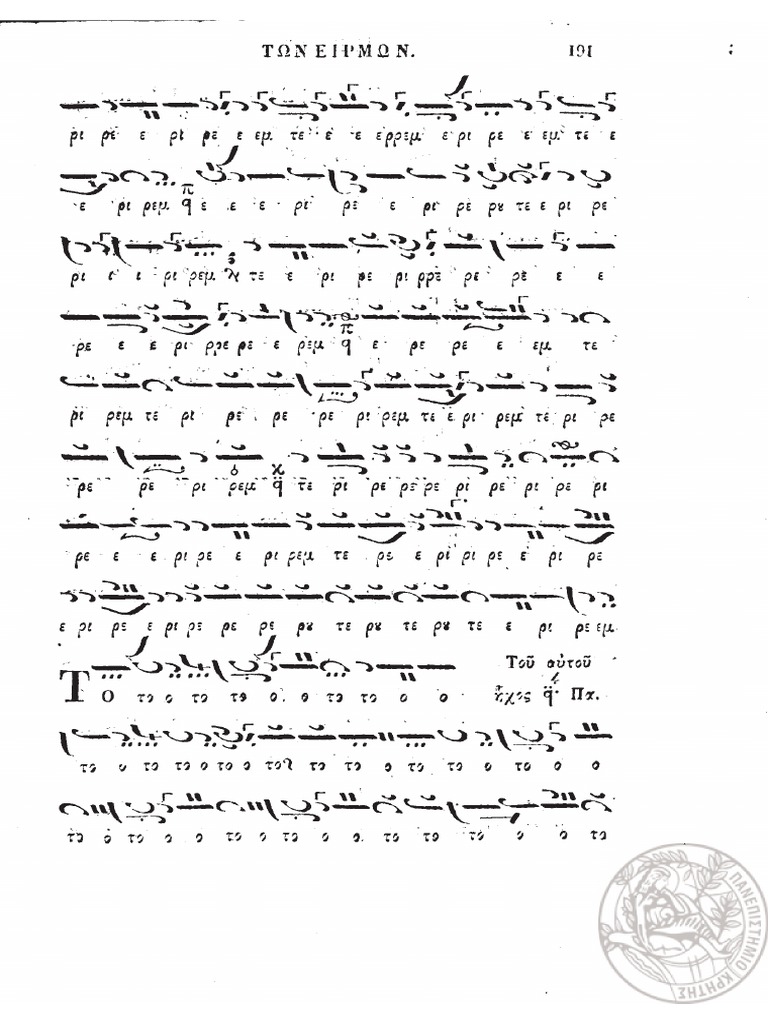 ΤΩΝ ΕΙΡΜΩΝ. 191
ρι ρε ε ρι ρε ε εμ τε ε ε ερρεμ ε ρι ρε ε εμ τε ε
ε ρι ρεμ ε ε ε ρι ρε ε ρι ρε ρυ τε ε ρι ρε
ρι ι ι ρι ρεμ τε ε ρι ρε ρι ρρε ρε ρε ε ε
ρε ε ε ρι ρρε ρε ε ρεμ ε ρε ρε ε εμ τε
ρι ρεμ τε ρι ρε ρε ρε ρι ρεμ τε ε ρι ρεμ τε ρι ρε
ρε ρε ρι ρεμ τε ρι ρε ρε ρε ρι ρε ρι ρε ρι
ρε ε ε ρι ρε ε ρι ρεμ τε ρε ε ρι ρι ρε ε ρι ρε
ε ρι ρε ε ρι ρε ρε ρε ρυ τε ρυ τε ρυ τε ε ρι ρε εμ
Τοῦ αὐτοῦ
ΤΟ το ο το το ο ο το το ο ο ἦχος Πα.
το ο το το ο το ο το το ο το το ο το ο ο
το ο το ο ο το ο το ο ο το το το ο ο το
ΠΑΝΕΠΙΣΤΗΜΙΟ ΚΡΗΤΗΣ